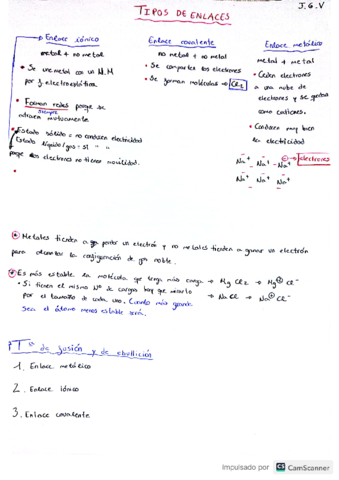 TIPOS DE ENLACES
J.G.V
Enlace iónico
metal + no metal
• Se une metal con un N.M
por f electroestática.
• Forman redes porque se
siempre
atraen mutuamente
• Estado sólido = no conducen electricidad
Estado líquido/gas = Sí " "
porque los electrones no tienen movilidad.
Enlace covalente
no metal + no metal
• Se comparten los electrones
• Se forman moléculas → Cl2
Enlace metálico
metal + metal
• Ceden electrones
a una nube de
electrones y se quedan
como cationes.
• Conducen muy bien
la electricidad
Na+ Na+ Na+ electrones
Na+ Na+ Na+
* Metales tienden a perder un electrón y no metales tienden a ganar un electrón
para alcanzar la configuración de gas noble.
* Es más estable la molécula que tenga más carga → MgCl2 → Mg Cl-
• Si tienen el mismo Nº de cargas hay que mirarlo
por el tamaño de cada uno. Cuanto más grande
sea el átomo menos estable será.
→ NaCl → Na+ Cl-
Tª de fusión y de ebullición
1. Enlace metálico
2. Enlace iónico
3. Enlace covalente
Impulsado por CS CamScanner